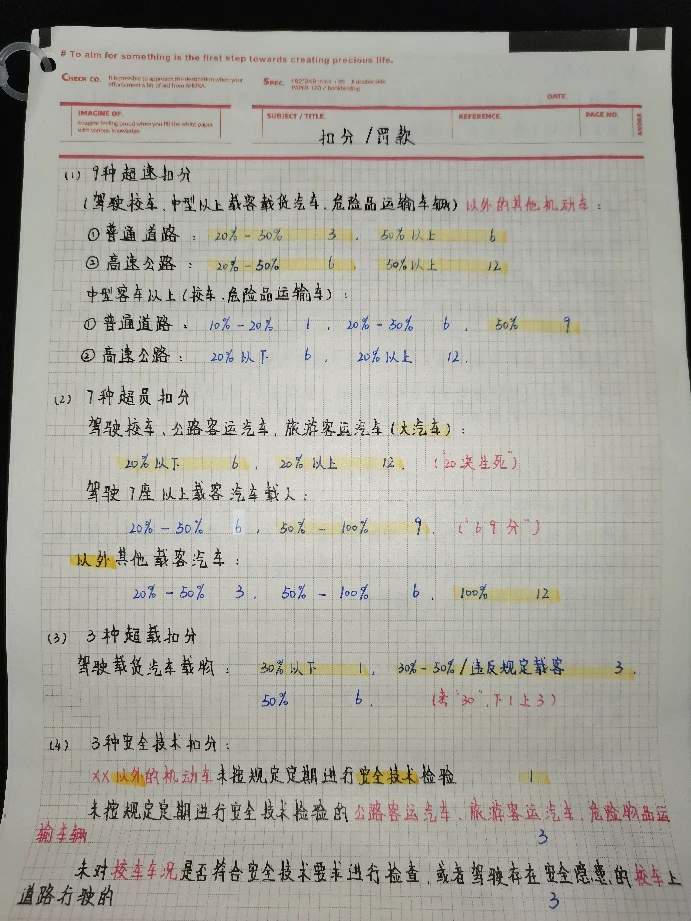 # To aim for something is the first step towards creating precious life.
CHECK CO. It is possible to approach the destination when your
efforts meet a bit of aid from ANORA.
SPEC.
DATE.
IMAGINE OF.
Imagine feeling proud when you fill the white paper
with various knowledge.
SUBJECT / TITLE.
REFERENCE.
PAGE NO.
扣分 / 罚款
(1) 9种超速扣分
(驾驶校车、中型以上载客载货汽车、危险品运输车辆)以外的其他机动车:
① 普通道路: 20% - 50% 3 , 50%以上 6
② 高速公路: 20% - 50% 6 , 50%以上 12
中型客车以上(校车、危险品运输车):
① 普通道路: 10% - 20% 1 , 20% - 50% 6 , 50% 9
② 高速公路: 20%以下 6 , 20%以上 12.
(2) 7种超员扣分
驾驶校车、公路客运汽车、旅游客运汽车(大汽车):
20%以下 6 , 20%以上 12. ("20决生死")
驾驶7座以上载客汽车载人:
20% - 50% 6 , 50% - 100% 9. ("69分")
以外其他载客汽车:
20% - 50% 3 , 50% - 100% 6 , 100% 12
(3) 3种超载扣分
驾驶载货汽车载物: 30%以下 1 , 30% - 50% / 违反规定载客 3.
50% 6. ("30",下1上3)
(4) 3种安全技术扣分:
XX以外的机动车未按规定定期进行安全技术检验 1
未按规定定期进行安全技术检验的公路客运汽车、旅游客运汽车、危险物品运
输车辆 3
未对校车车况是否符合安全技术要求进行检查,或者驾驶存在安全隐患的校车上
道路行驶的 3